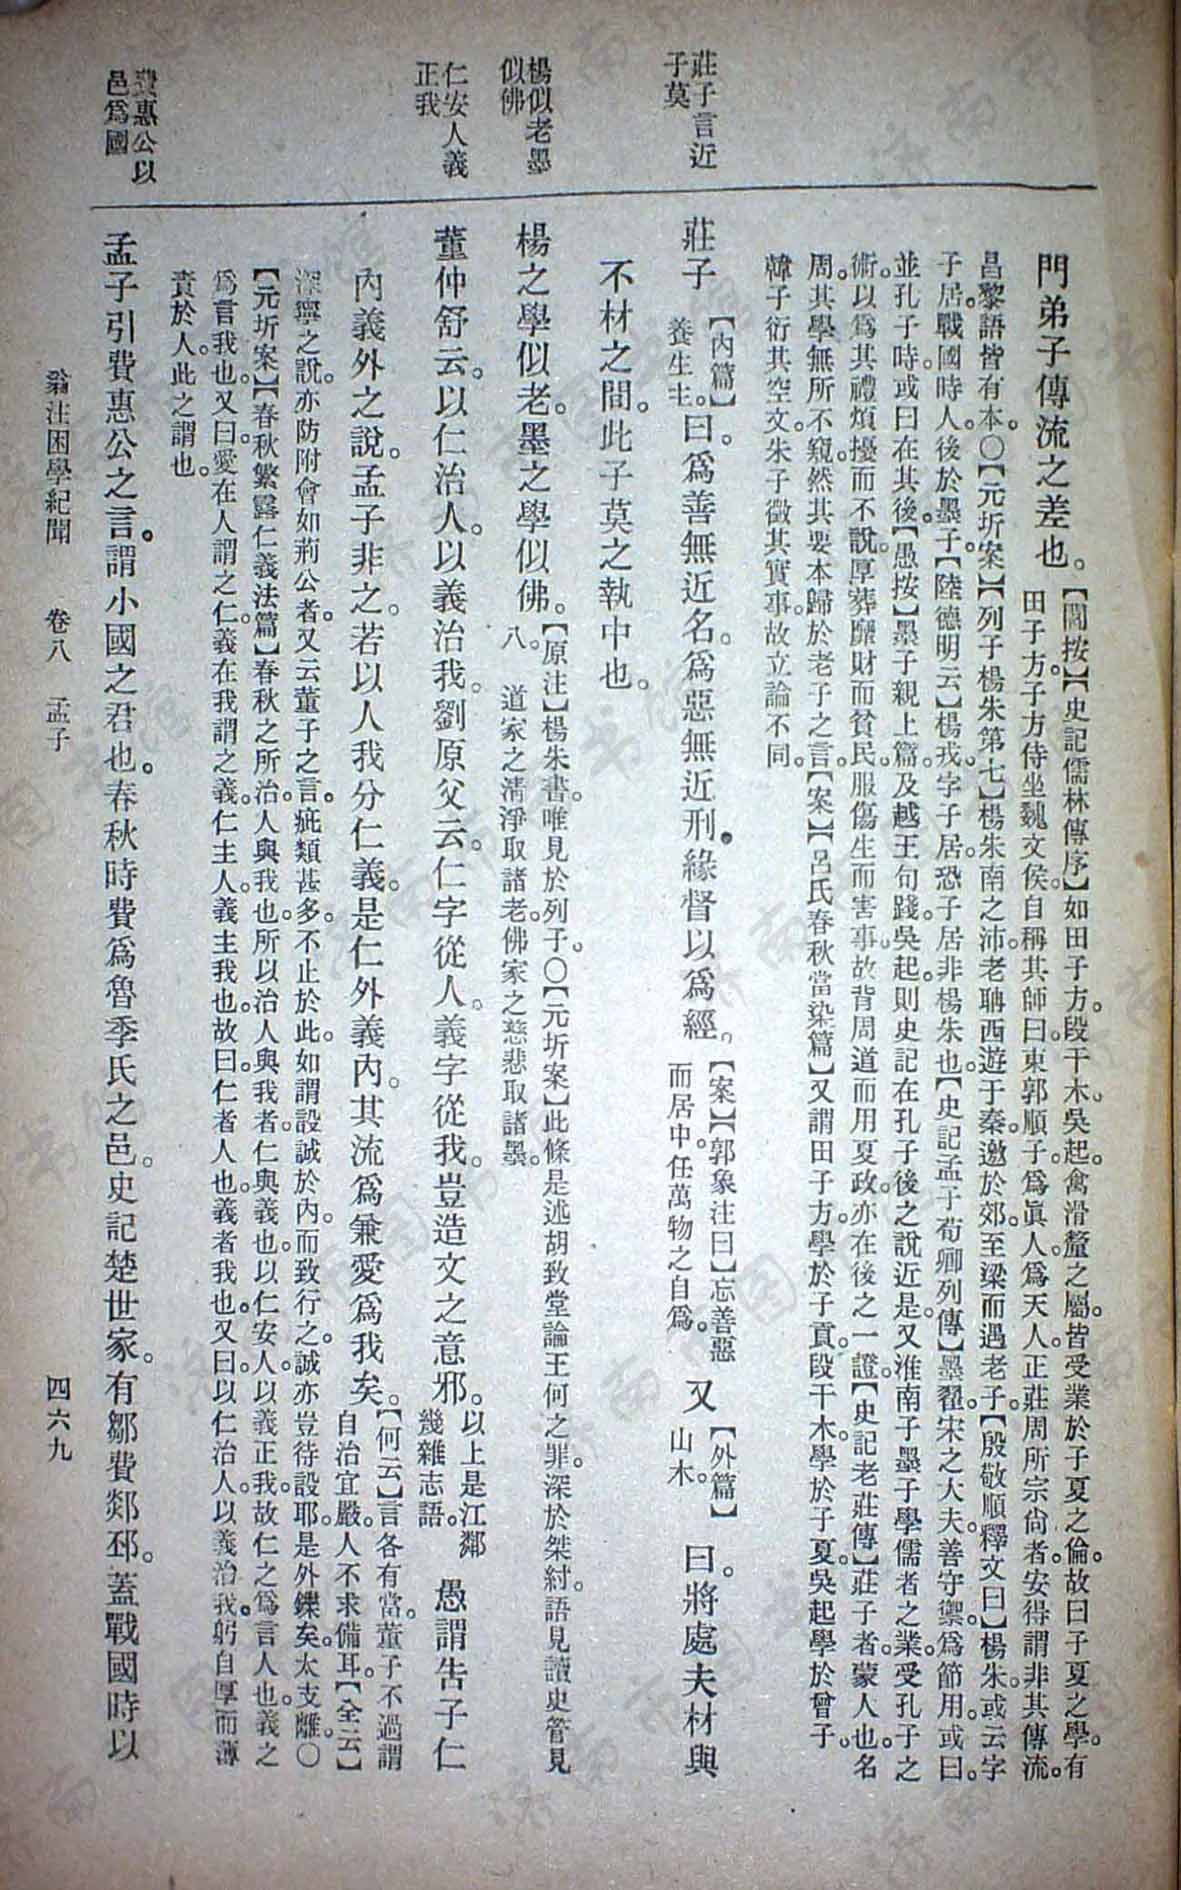 門弟子傳流之差也。
【閻按】【史記儒林傳序】如田子方。段干木。吳起。禽滑釐之屬。皆受業於子夏之倫。故曰子夏之學。有
田子方。子方侍坐魏文侯。自稱其師曰。東郭順子。爲眞人。爲天人。正莊周所宗尙者。安得謂非其傳流。
昌黎語皆有本。〇【元圻案】【列子楊朱第七】楊朱南之沛。老聃西遊于秦。邀於郊。至梁而遇老子。【殷敬順釋文曰】楊朱。或云字
子居。戰國時人。後於墨子。【陸德明云】楊戎。字子居。恐子居非楊朱也。【史記孟子荀卿列傳】墨翟。宋之大夫。善守禦。爲節用。或曰。
並孔子時。或曰在其後。【愚按】墨子親上篇。及越王句踐。吳起。則史記在孔子後之說近是。又淮南子墨子學儒者之業。受孔子之
術。以爲其禮煩擾而不說。厚葬靡財而貧民。服傷生而害事。故背周道而用夏政。亦在後之一證。【史記老莊傳】莊子者。蒙人也。名
周。其學無所不窺。然其要本歸於老子之言。【案】【呂氏春秋當染篇】又謂田子方。學於子貢。段干木學於子夏。吳起學於曾子。
韓子衍其空文。朱子徵其實事。故立論不同。
莊子
【內篇】
養生主。
曰。爲善無近名。爲惡無近刑。緣督以爲經。
【案】【郭象注曰】忘善惡
而居中。任萬物之自爲。
又
【外篇】
山木。
曰。將處夫材與
不材之間。此子莫之執中也。
楊之學似老。墨之學似佛。
【原注】楊朱書。唯見於列子。〇【元圻案】此條是述胡致堂論王何之罪。深於桀紂。語見讀史管見
八。道家之清淨取諸老。佛家之慈悲取諸墨。
董仲舒云。以仁治人。以義治我。劉原父云。仁字從人。義字從我。豈造文之意邪。
以上是江鄰
幾雜志語。
愚謂告子仁
內義外之說。孟子非之。若以人我分仁義。是仁外義內。其流爲兼愛爲我矣。
【何云】言各有當。董子不過謂
自治宜嚴。人不求備耳。【全云】
深寧之說。亦防附會如荊公者。又云董子之言。疵類甚多。不止於此。如謂設誠於內。而致行之。誠亦豈待設耶。是外鑠矣。太支離。〇
【元圻案】【春秋繁露仁義法篇】春秋之所治。人與我也。所以治人與我者。仁與義也。以仁安人。以義正我。故仁之爲言人也。義之
爲言我也。又曰。愛在人謂之仁。義在我謂之義。仁主人。義主我也。故曰。仁者人也。義者我也。又曰。以仁治人。以義治我。躬自厚而薄
責於人。此之謂也。
孟子引費惠公之言。謂小國之君也。春秋時費爲魯季氏之邑。史記楚世家。有鄒費郯邳。蓋戰國時以
莊子言近
子莫
楊似老墨
似佛
仁安人義
正我
費惠公以
邑爲國
翁注困學紀聞 卷八 孟子
四六九